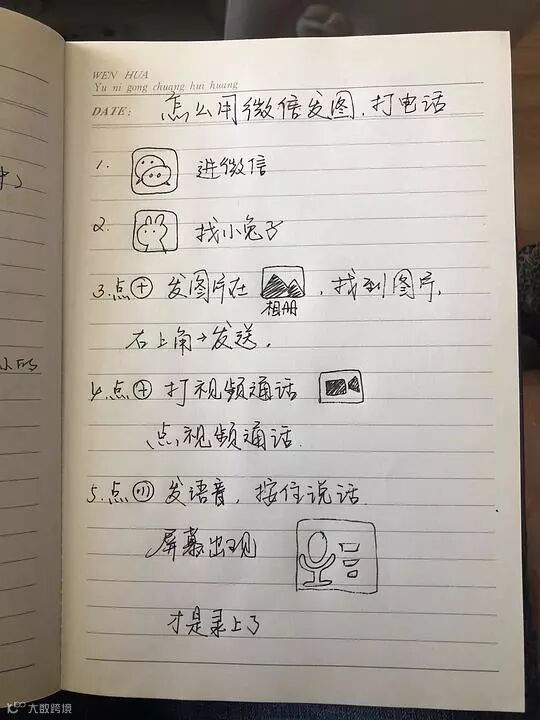 WEN HUA
Yu ni gong chuang hui huang
DATE: 怎么用微信发图.打电话
1. 进微信
2. 找小兔子
3.点⊕ 发图片在 , 找到图片,
相册
右上角→发送.
4.点⊕ 打视频通话
点视频通话.
5.点 发语音, 按住说话
屏幕出现
才是录上了
大数跨境